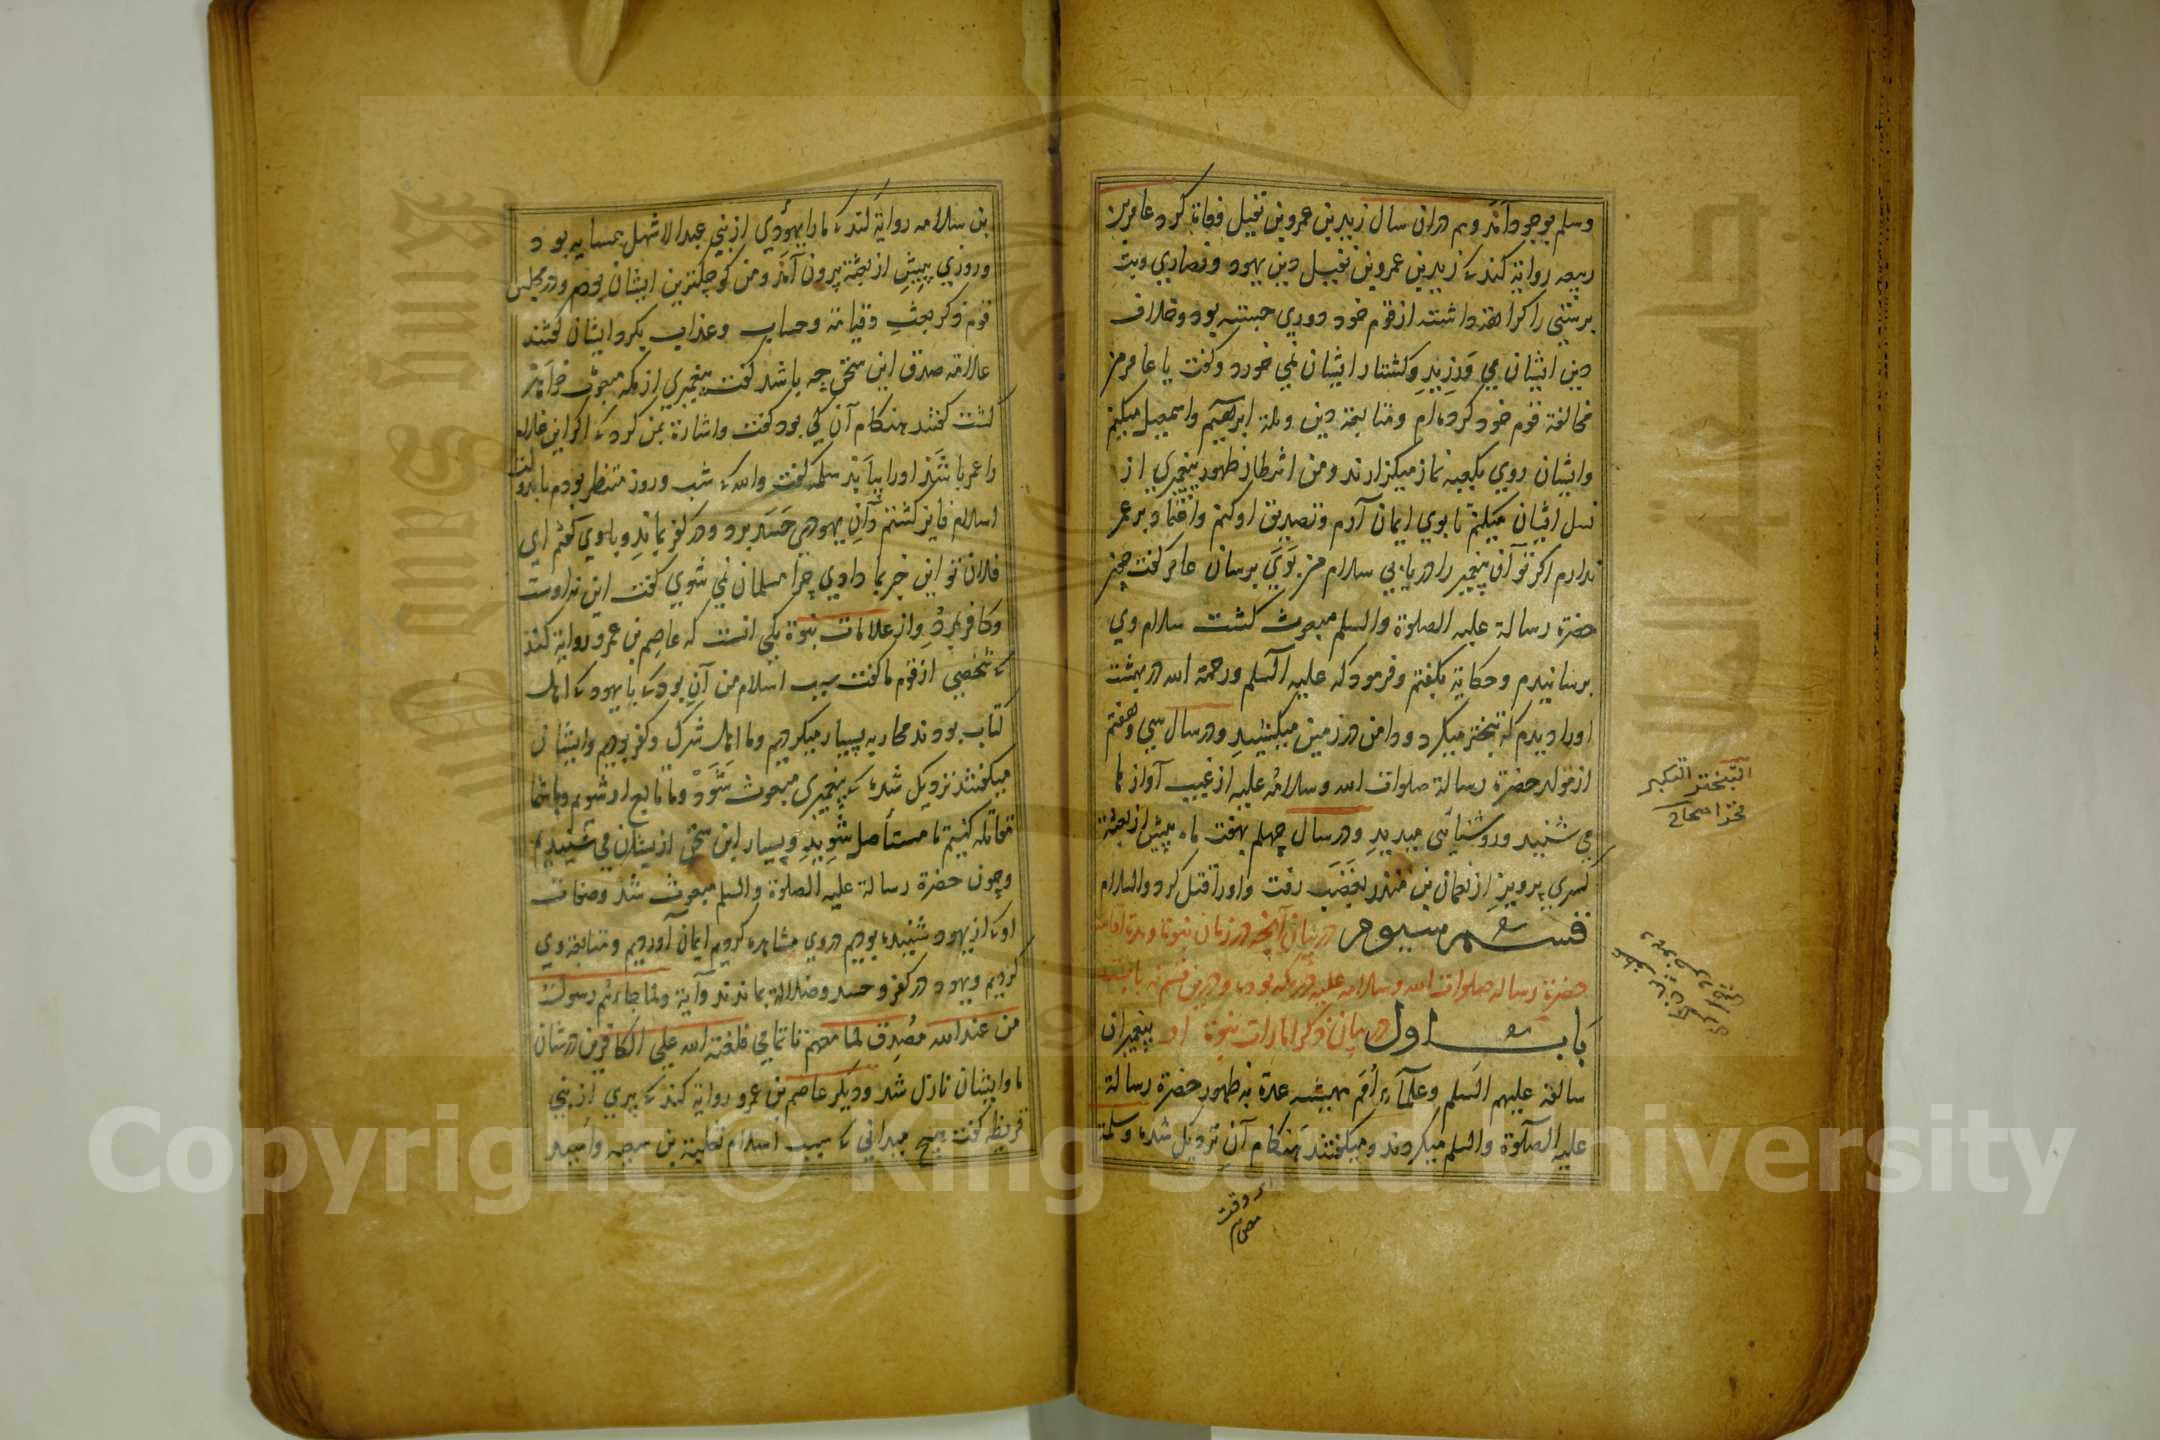 وسلم بوجود آمد وهم دران سال زید بن عمرو بن نفیل وفاة کرد عامر بن
ربیعه روایة کند که زید بن عمرو بن نفیل دین یهود ونصاری وبت
برستی را کراهة داشته از قوم خود دوری جسته بود وخلاف
دین ایشان می ورزید وکشتار ایشان نمی خورد وکفت یا عامر من
مخالفة قوم خود کرده ام ومتابعة دین وملة ابراهیم واسمعیل میکنم
وایشان روی بکعبه نماز میکزاردند ومن انتظار ظهور پیغمبری از
نسل ایشان میکنم تا بوی ایمان آرم وتصدیق او کنم واعتماد بر عمر
ندارم اکر تو آن پیغمبر را دریابی سلام من بوی برسان عامر کفت چون
حضرة رسالة علیه الصلوة والسلم مبعوث کشت سلام وی
برسانیدم وحکایة بکفتم وفرمود که علیه السلم ورحمة الله در بهشت
اورا دیدم که تبختر میکرد ودامن در زمین میکشید ودر سال سی وهفتم
از مولد حضرة رسالة صلوات الله وسلامه علیه از غیب آوازها
می شنید وروشنایی میدید ودر سال چهلم بهفت ماه پیش از بعثة
کسری پرویز از نعمان بن منذر بغضب رفت واورا قتل کرد والسلام
قسم سیوم در بیان آنچه در زمان نبوة ومدة اقامة
حضرة رسالة صلوات الله وسلامه علیه در مکه بود ودرین قسم نه بابست
باب اول در بیان ذکر امارات نبوة او پیغمبران
سالفه علیهم السلم وعلماء امم همیشه عدة به ظهور حضرة رسالة
علیه الصلوة والسلم میکردند ومیکفتند هنکام آن نزدیک شده وسلمة
التبختر التکبر
ای وقت
بن سلامه روایة کند که مارا یهودی از بنی عبد الاشهل همسایه بود
وروزی پیش از بعثة بیرون آمد ومن کوچکترین ایشان بودم ودر مجلس
قوم ذکر بعث وقیامة وحساب وعذاب بکرد ایشان کفتند
علامة صدق این سخن چه باشد کفت پیغمبری از مکه مبعوث خواهد
کشت کفتند هنکام آن کی بود کفت واشارة بمن کرد که اکر این غلام
را عمر باشد اورا بیابد سلمه کفت والله که شب وروز منتظر بودم تا بدولت
اسلام فایز کشتم وآن یهودی حسد برد ودر کفر بماند وبا وی کفتم ای
فلان تو این خبر بما دادی چرا مسلمان نمی شوی کفت این نه اوست
وکافر بمرد واز علامات نبوة یکی آنست که عاصم بن عمرو روایة کند
که شخصی از قوم ما کفت سبب اسلام من آن بود که با یهود که اهل
کتاب بودند محاربه بسیار میکردیم وما اهل شرک وکفر بودیم وایشان
میکفتند نزدیک شده که پیغمبری مبعوث شود وما تابع او شویم وبا شما
مقاتله کنیم تا مستأصل شوید وبسیار این سخن از ایشان می شنیدیم
وچون حضرة رسالة علیه الصلوة والسلم مبعوث شد وصفات
او که از یهود شنیده بودیم در وی مشاهده کردیم ایمان آوردیم ومتابعة وی
کردیم ویهود در کفر وحسد وضلالة بماندند وآیة ولما جاءهم رسول
من عند الله مصدق لما معهم تا تمامی فلعنة الله علی الکافرین در شان
ما وایشان نازل شد ودیکر عاصم بن عمرو روایة کند که پیری از بنی
قریظه کفت هیچ میدانی که سبب اسلام ثعلبة بن سعیه واسید